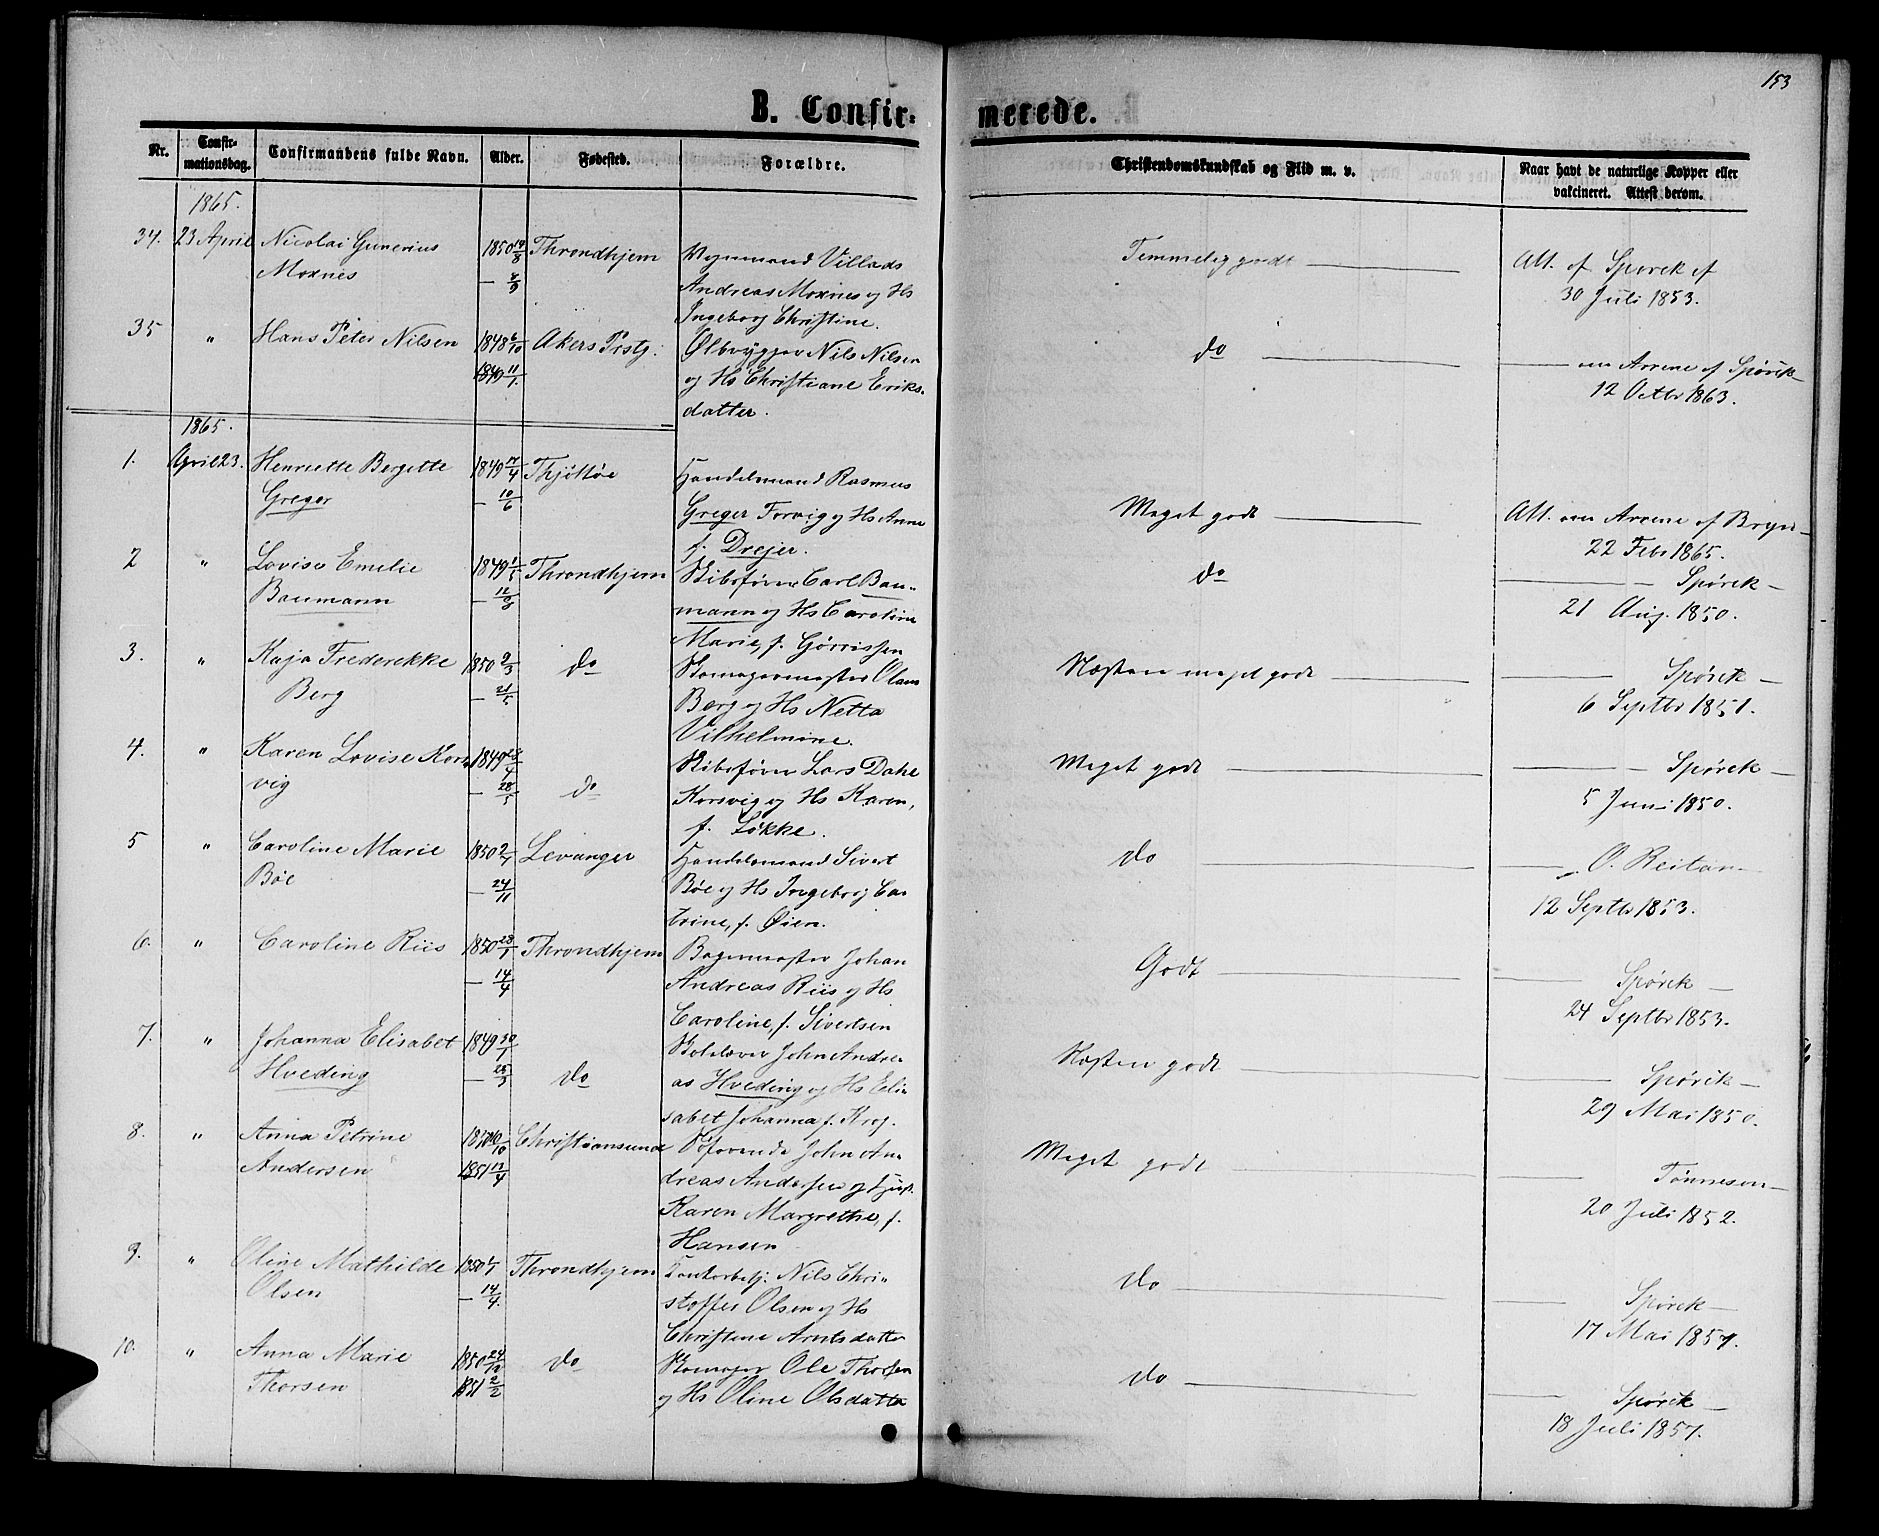 153
B. Confir=
merede.
Nr.
Confir=
mationsdag.
Confirmandens fulde Navn.
Alder.
Fødested.
Forældre.
Christendomskundskab og Flid m. v.
Naar havt de naturlige Kopper eller
vakcineret. Attest derom.
1865.
34. 23 April Nicolai Gunerius 1850 Throndhjem Villads Temmelig godt Att. af Spørck af
Moxnes Andreas Moxnes og Hs 30 Juli 1853.
Ingeborg Christine.
35 " Hans Peter Nilsen 1848 6/10 Akers Prstgj. Ølbrygger Nils Nilsen do Arrene af Spørck
1849 11/1. og Hs Christiane Eriks- 12 Octbr 1863.
datter.
1865.
1. April 23. Henriette Bergette 1849 17/4 Thjöttöe Handelsmand Rasmus
Greger 10/6 Greger Forvig og Hs Anne Meget godt Att. om Arrene af Bryn
f. Drejer. 22 Febr 1865.
2 " Lovise Emilie 1849 1/5 Throndhjem Skibsfører Carl Bau- do Spørck
Baumann 12/8 mann og Hs Caroline 21 Aug. 1850.
Marie, f. Gørrissen
3. " Kaja Frederekke 1850 9/3 do Skomagermester Olaus Næsten meget godt Spørck
Berg 21/5 Berg og Hs Netta 6 Septbr 1851.
Vilhelmine.
4. " Karen Lovise Kors- 1849 28/4 Skibsfører Lars Dahl Meget godt Spørck
vig 28/5 do Korsvig og Hs Karen, 5 Juni 1850.
f. Løkke.
5 " Caroline Marie 1850 2/7 Levanger Handelsmand Sivert do O. Reitan
Böe 24/11 Böe og Hs Ingeborg Ca- 12 Septbr 1853.
trine, f. Øien.
6. " Caroline Riis 1850 23/1 Throndhjem Bagermester Johan Godt Spørck
14/4 Andreas Riis og Hs 24 Septbr 1853.
Caroline, f. Sivertsen
7. " Johanna Elisabet 1849 30/1 John Andre- Næsten godt
Hveding 25/3 do as Hveding og Hs Eli- Spørck
sabet Johanna f. Krog. 29 Mai 1850.
8. " Anna Petrine Christiansund Søfarende John An- Meget godt
Andersen 1851 13/4 dreas Andersen og Tønneson
Karen Margrethe, f. 20 Juli 1852.
Hansen
9. " Oline Mathilde 1850 Throndhjem Contorbetj. Nils Chri- do
Olsen 14/4. stoffer Olsen og Hs Spørck
Christine Arntsdatter 17 Mai 1857.
10. " Anna Marie 1850 24/12 do Skomager Ole Thorsen do
Thorsen 1851 2/2 og Hs Oline Olsdatter Spørck
18 Juli 1857.